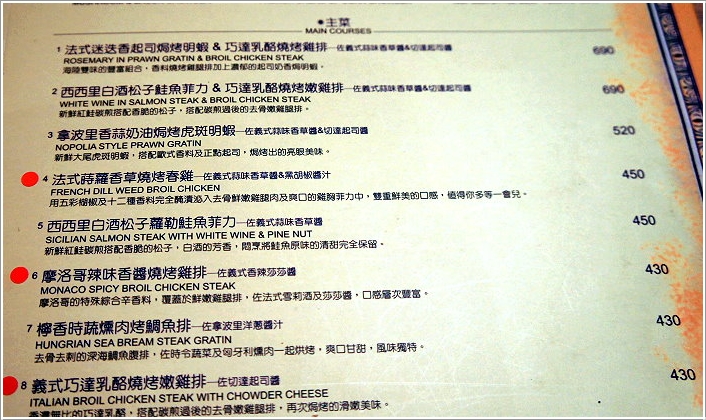 ●主菜
MAIN COURSES
1 法式迷迭香起司焗烤明蝦 & 巧達乳酪燒烤雞排—佐義式蒜味香草醬&切達起司醬 690
ROSEMARY IN PRAWN GRATIN & BROIL CHICKEN STEAK
海陸雙味的豐富組合，香料燒烤雞腿排加上濃郁的起司奶香焗明蝦。
2 西西里白酒松子鮭魚菲力 & 巧達乳酪燒烤嫩雞排—佐義式蒜味香草醬&切達起司醬 690
WHITE WINE IN SALMON STEAK & BROIL CHICKEN STEAK
新鮮紅鮭碳煎搭配香脆的松子，搭配碳煎過後的去骨嫩雞腿排。
3 拿波里香蒜奶油焗烤虎斑明蝦—佐義式蒜味香草醬&切達起司醬 520
NOPOLIA STYLE PRAWN GRATIN
新鮮大尾虎斑明蝦，搭配歐式香料及正點起司，焗烤出的亮眼美味。
4 法式蒔蘿香草燒烤春雞—佐義式蒜味香草醬&黑胡椒醬汁 450
FRENCH DILL WEED BROIL CHICKEN
用五彩椒椒及十二種香料完全醃漬泌入去骨鮮嫩雞腿肉及爽口的雞胸菲力中，雙重鮮美的口感，值得你多等一會兒。
5 西西里白酒松子蘿勒鮭魚菲力—佐義式蒜味香草醬 450
SICILIAN SALMON STEAK WITH WHITE WINE & PINE NUT
新鮮紅鮭碳煎搭配香脆的松子，白酒的芳香，悶烹將鮭魚原味的清甜完全保留。
6 摩洛哥辣味香醬燒烤雞排—佐義式香辣莎莎醬 430
MONACO SPICY BROIL CHICKEN STEAK
摩洛哥的特殊綜合辛香料，覆蓋於鮮嫩雞腿排，佐法式雪莉酒及莎莎醬，口感層次豐富。
7 檸香時蔬燻肉烤鯛魚排—佐拿波里洋蔥醬汁 430
HUNGRIAN SEA BREAM STEAK GRATIN
去骨去刺的深海鯛魚腹排，佐時令蔬菜及匈牙利燻肉一起烘烤，爽口甘甜，風味獨特。
8 義式巧達乳酪燒烤嫩雞排—佐切達起司醬 430
ITALIAN BROIL CHICKEN STEAK WITH CHOWDER CHEESE
香濃無比的巧達乳酪，搭配碳煎過後的去骨嫩雞腿排，再次焗烤的滑嫩美味。